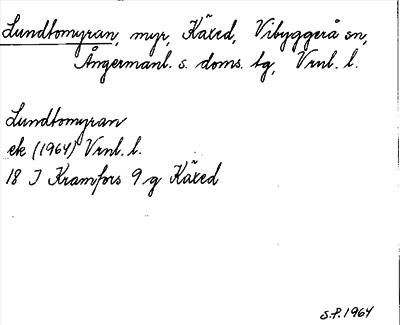 Lundtomyran, myr, Käxed, Vibyggerå sn,
Ångermanl. s. doms. tg, Vrnl. l.
Lundtomyran
ek (1964) Vrnl. l.
18 I Kramfors 9 g Käxed
S.P. 1964